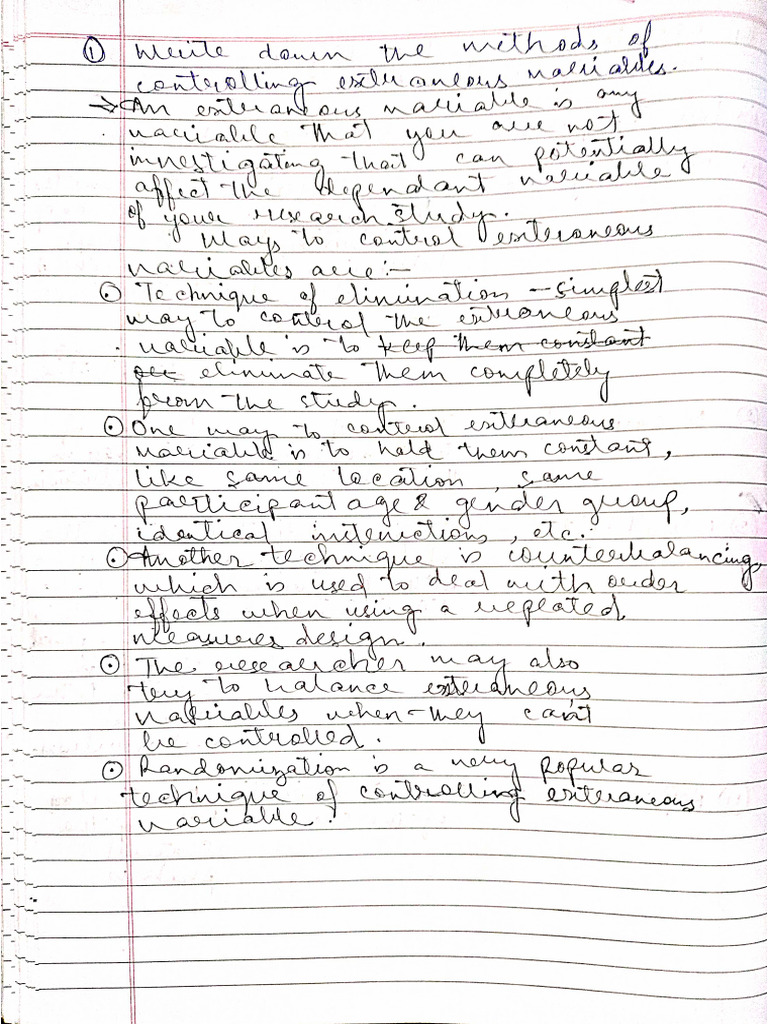 ① Write down the methods of
controlling extraneous variables.
→ An extraneous variable is any
variable that you are not
investigating that can potentially
affect the dependant variable
of your research study.
Ways to control extraneous
variables are:-
⊙ Technique of elimination - simplest
way to control the extraneous
variable is to keep them constant
or eliminate them completely
from the study.
⊙ One way to control extraneous
variable is to hold them constant,
like same location, same
participant age & gender group,
identical instructions, etc.
⊙ Another technique is counterbalancing,
which is used to deal with order
effects when using a repeated
measures design.
⊙ The researcher may also
try to balance extraneous
variables when they can't
be controlled.
⊙ Randomization is a very popular
technique of controlling extraneous
variable.